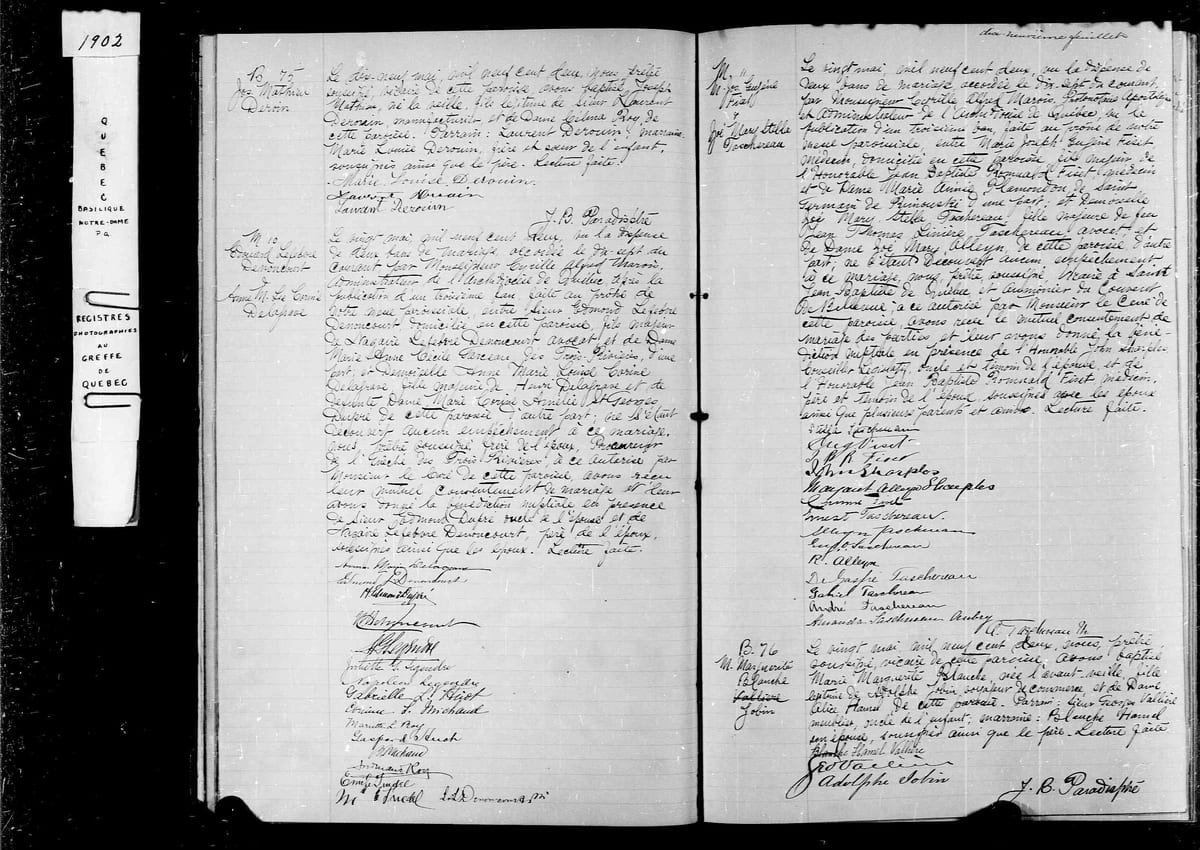 1902
QUEBEC
BASILIQUE
NOTRE-DAME
P.Q
REGISTRES
PHOTOGRAPHIES
AU
GREFFE
DE
QUEBEC
B. 75
Jos Mathieu
Deroin
Le dix-neuf mai, mil neuf cent deux, nous prêtre
soussigné, vicaire de cette paroisse avons baptisé Joseph
Mathieu, né la veille, fils légitime de Sieur Laurent
Derouin, manufacturier et de Dame Celma Roy, de
cette paroisse. Parrain: Laurent Derouin; marraine
Marie Louise Derouin, frère et sœur de l'enfant,
soussignés ainsi que le père. Lecture faite.
Marie Louise Derouin.
Laurent Derouin
J. B. Paradis ptre
M. 10
Edmond Lefebvre
Denoncourt
&
Anne M. Ls Corine
Delagrave
Le vingt mai, mil neuf cent deux, vu la dispense
de deux bans de mariage, accordée le dix-sept du
courant par Monseigneur Cyrille Alfred Marois,
Administrateur de l'Archidiocèse de Québec après la
publication d'un troisième ban faite au prône de
notre messe paroissiale, entre Sieur Edmond Lefebvre
Denoncourt domicilié en cette paroisse, fils majeur
de Nazaire Lefebvre Denoncourt avocat et de Dame
Marie Anne Cécile Garceau des Trois-Rivières, d'une
part, et Demoiselle Anne Marie Louise Corine
Delagrave, fille majeure de Henri Delagrave et de
défunte Dame Marie Corine Amélie St Georges
Dupré de cette paroisse d'autre part; ne s'étant
découvert aucun empêchement à ce mariage,
nous prêtre soussigné frère de l'époux, Procureur
de l'Évêché des Trois Rivières, à ce autorisé par
Monsieur le Curé de cette paroisse, avons reçu
leur mutuel consentement de mariage et leur
avons donné la bénédiction nuptiale en présence
de Sieur Edmond Dupré oncle de l'épouse et de
Nazaire Lefebvre Denoncourt, père de l'époux,
soussignés ainsi que les époux. Lecture faite.
Edmond L Denoncourt
H Edmond Dupré
N Denoncourt
Juliette G. Legendre
Napoléon Legendre
Gabrielle L. Huot
Corinne F. Michaud
Mariette L. Roy
Gaspard Huot
L. L. Denoncourt ptre
dix-neuvième feuillet
M. 11
M. Jos Eugène
Fiset
&
Zoé Mary Stella
Taschereau
Le vingt mai, mil neuf cent deux, vu la dispense de
deux bans de mariage, accordée le dix-sept du courant
par Monseigneur Cyrille Alfred Marois, Protonotaire Apostolique
et Administrateur de l'Archidiocèse de Québec, vu la
publication d'un troisième ban, faite au prône de notre
messe paroissiale, entre Marie Joseph Eugène Fiset
Médecin, domicilié en cette paroisse, fils majeur de
l'Honorable Jean Baptiste Romuald Fiset médecin
et de Dame Marie Aimée Plamondon de Saint
Germain de Rimouski d'une part; et Demoiselle
Zoé Mary Stella Taschereau, fille majeure de feu
Jean Thomas Linière Taschereau avocat et
de Dame Zoé Mary Alleyn, de cette paroisse d'autre
part; ne s'étant découvert aucun empêchement
à ce mariage, nous prêtre soussigné, Vicaire à Saint
Jean Baptiste de Québec et aumônier du Couvent
à ce autorisé par Monsieur le Curé de
cette paroisse, avons reçu le mutuel consentement de
mariage des parties et leur avons donné la béné-
diction nuptiale en présence de l'Honorable John Sharples
Conseiller Législatif, oncle et témoin de l'épouse et de
l'Honorable Jean Baptiste Romuald Fiset médecin,
père et témoin de l'époux soussignés avec les époux
ainsi que plusieurs parents et amis. Lecture faite.
Stella Taschereau
Eug Fiset
J. B. R. Fiset
John Sharples
Margaret Alleyn Sharples
Ernest Taschereau.
Alleyn Taschereau
Eug. O. Taschereau
R. Alleyn
De Gaspé Taschereau
Gabriel Taschereau
André Taschereau
Amanda Taschereau Aubry
B. 76
M. Marguerite
Blanche
Vallière
Jobin
Le vingt mai, mil neuf cent deux, nous, prêtre
soussigné, vicaire de cette paroisse, avons baptisé
Marie Marguerite Blanche, née l'avant-veille, fille
légitime de Adolphe Jobin, voyageur de commerce, et de Dame
Alice Hamel de cette paroisse. Parrain: Sieur Georges Vallière
meublier, oncle de l'enfant; marraine: Blanche Hamel
son épouse, soussignés ainsi que le père. Lecture faite
Blanche Hamel Vallière
Geo Vallière
Adolphe Jobin
J. B. Paradis ptre